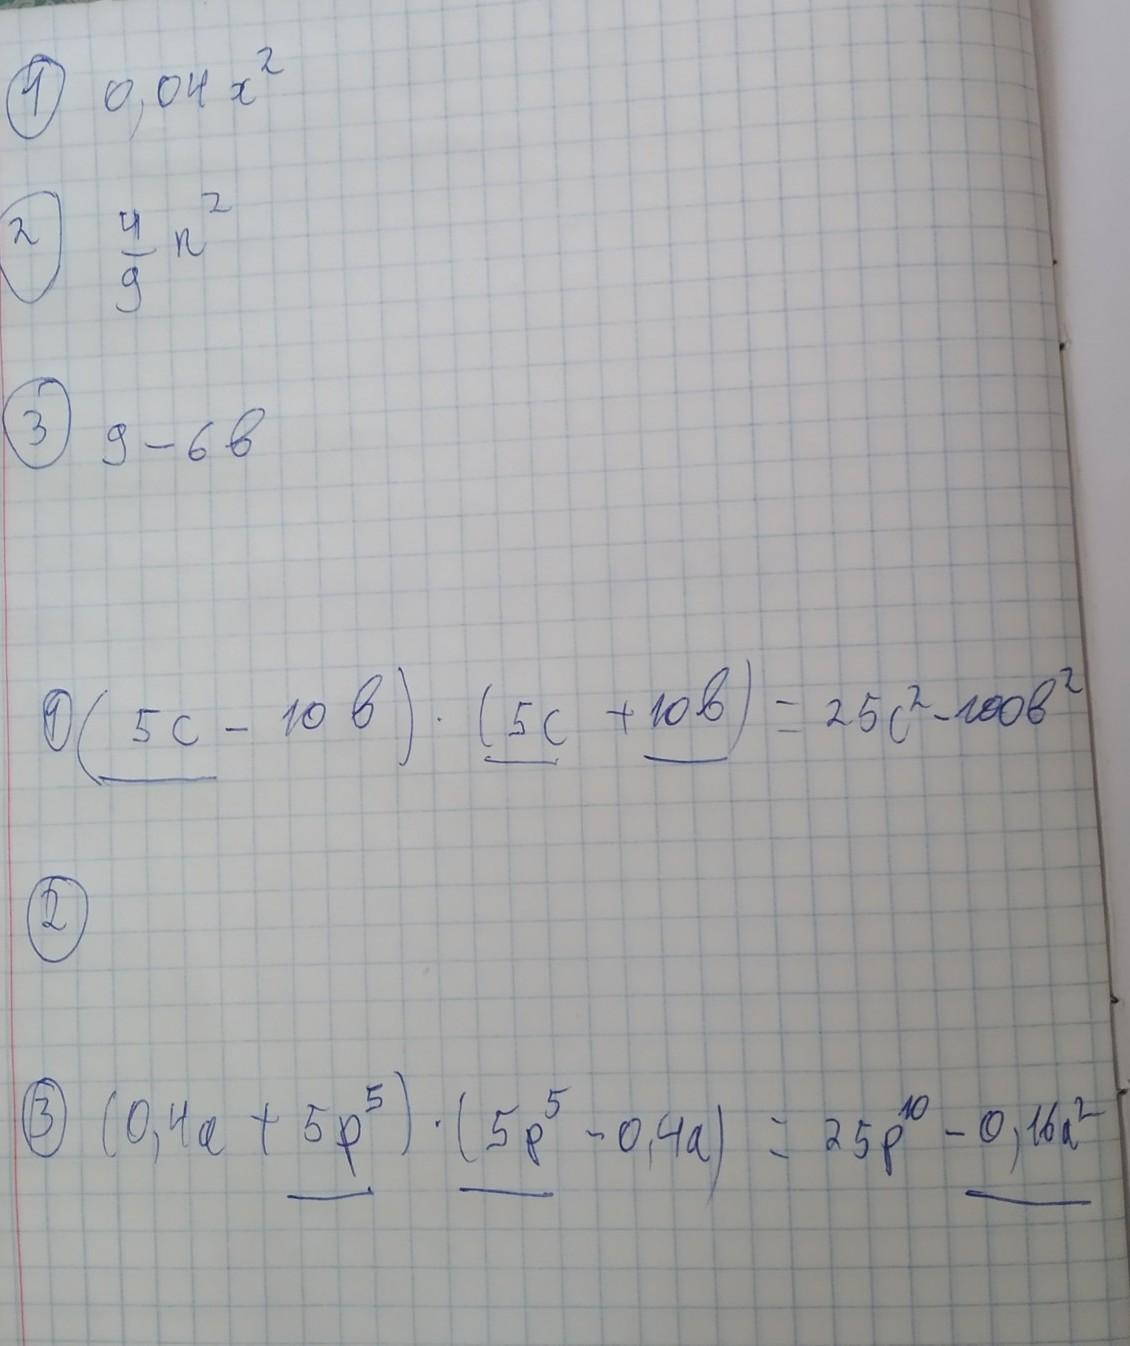 ① 0,04x²
② 4/9 n²
③ 9 - 6в
① (5c - 10в) · (5c + 10в) = 25c² - 100в²
②
③ (0,4a + 5p⁵) · (5p⁵ - 0,4a) = 25p¹⁰ - 0,16a²